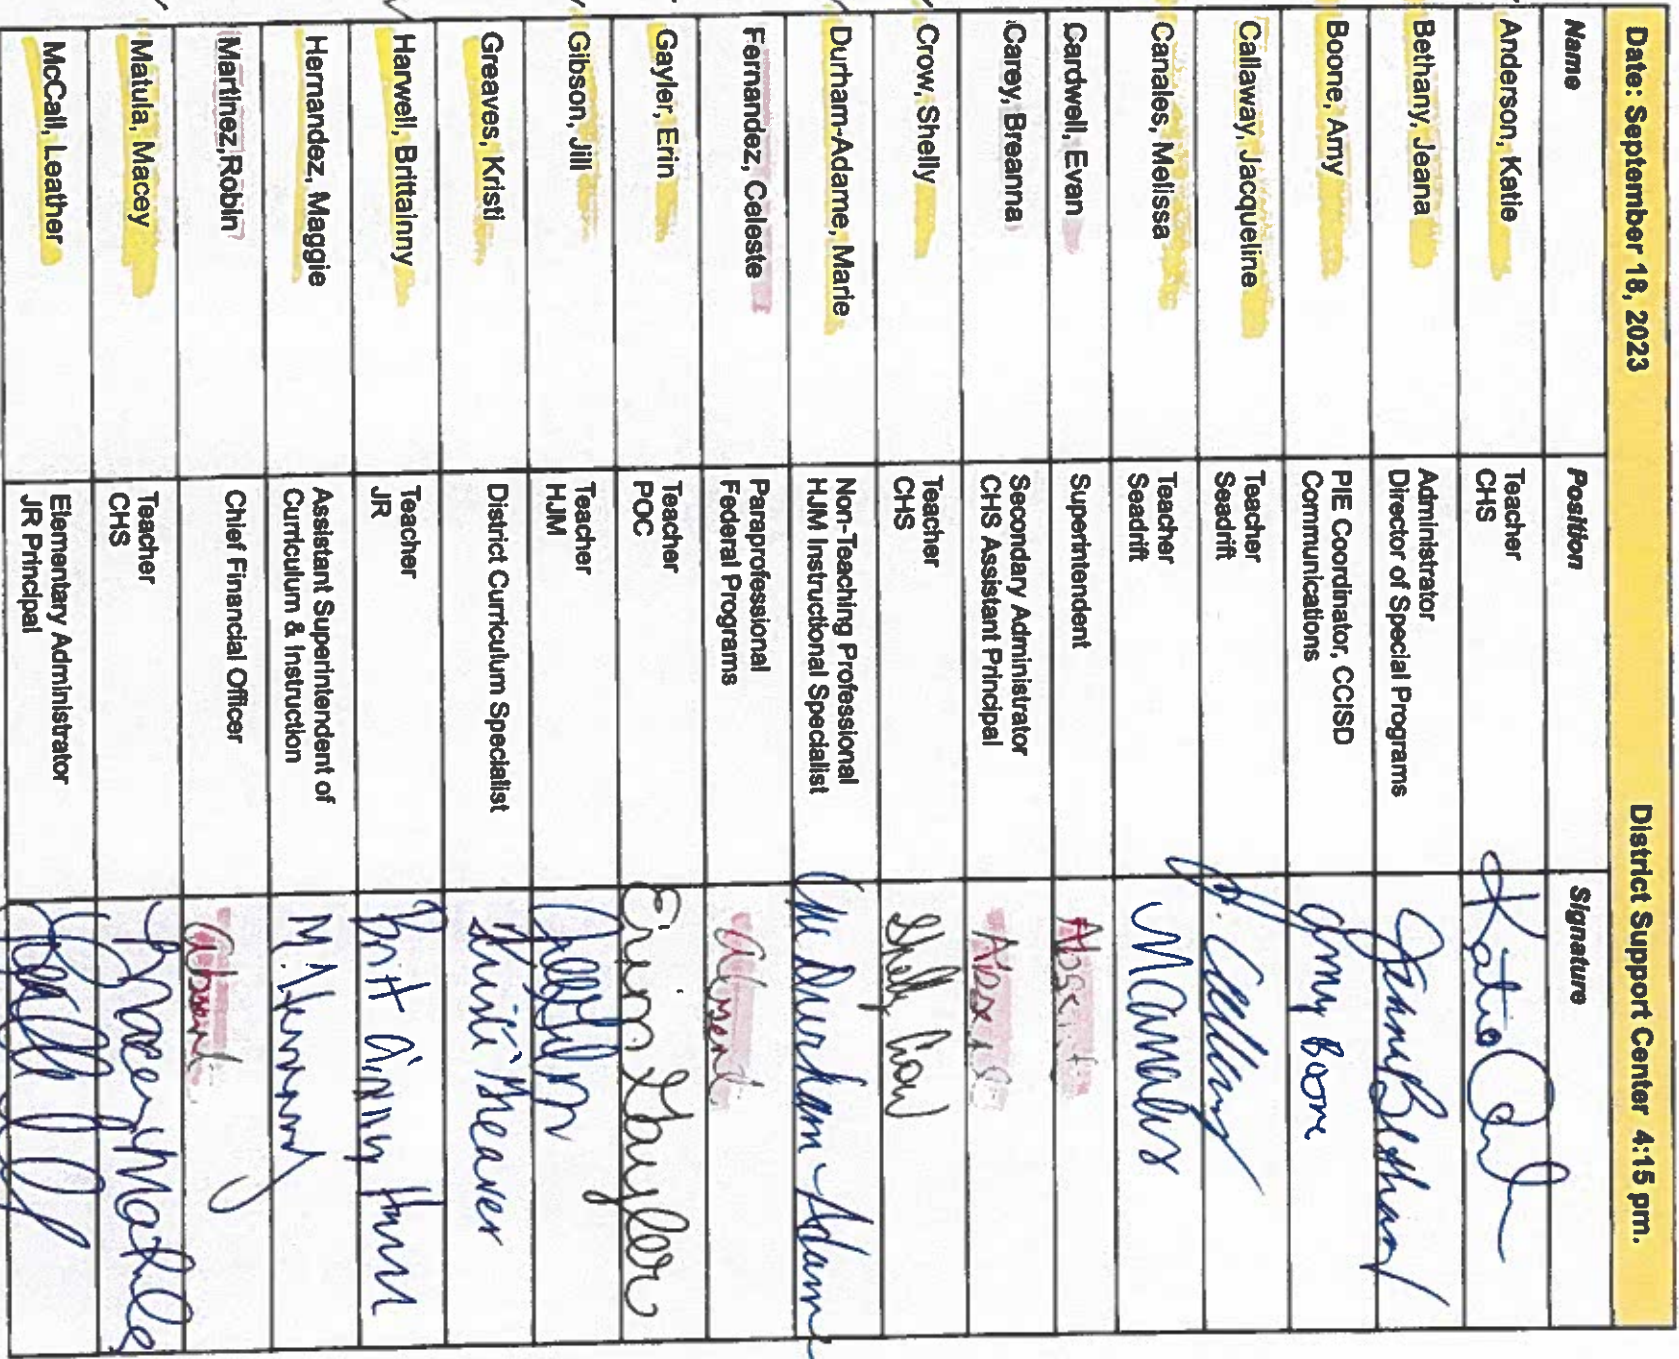 Date: September 18, 2023 District Support Center 4:15 pm.
Name Position Signature
Anderson, Katie Teacher Katie
CHS
Bethany, Jeana Administrator Jeana Bethany
Director of Special Programs
Boone, Amy PIE Coordinator, CCISD Amy Boone
Communications
Callaway, Jacqueline Teacher J. Callaway
Seadrift
Canales, Melissa Teacher MCanales
Seadrift
Cardwell, Evan Superintendent Absent
Carey, Breanna Secondary Administrator Absent
CHS Assistant Principal
Crow, Shelly Teacher Shelly Crow
CHS
Durham-Adame, Marie Non-Teaching Professional M Durham-Adame
HJM Instructional Specialist
Fernandez, Celeste Paraprofessional Absent
Federal Programs
Gayler, Erin Teacher Erin Gayler
POC
Gibson, Jill Teacher
HJM
Greaves, Kristi District Curriculum Specialist Kristi Greaves
Harwell, Brittainny Teacher Brittainny
JR
Hernandez, Maggie Assistant Superintendent of M. Hernandez
Curriculum & Instruction
Martinez, Robin Chief Financial Officer Absent
Matula, Macey Teacher Macey Matula
CHS
McCall, Leather Elementary Administrator
JR Principal